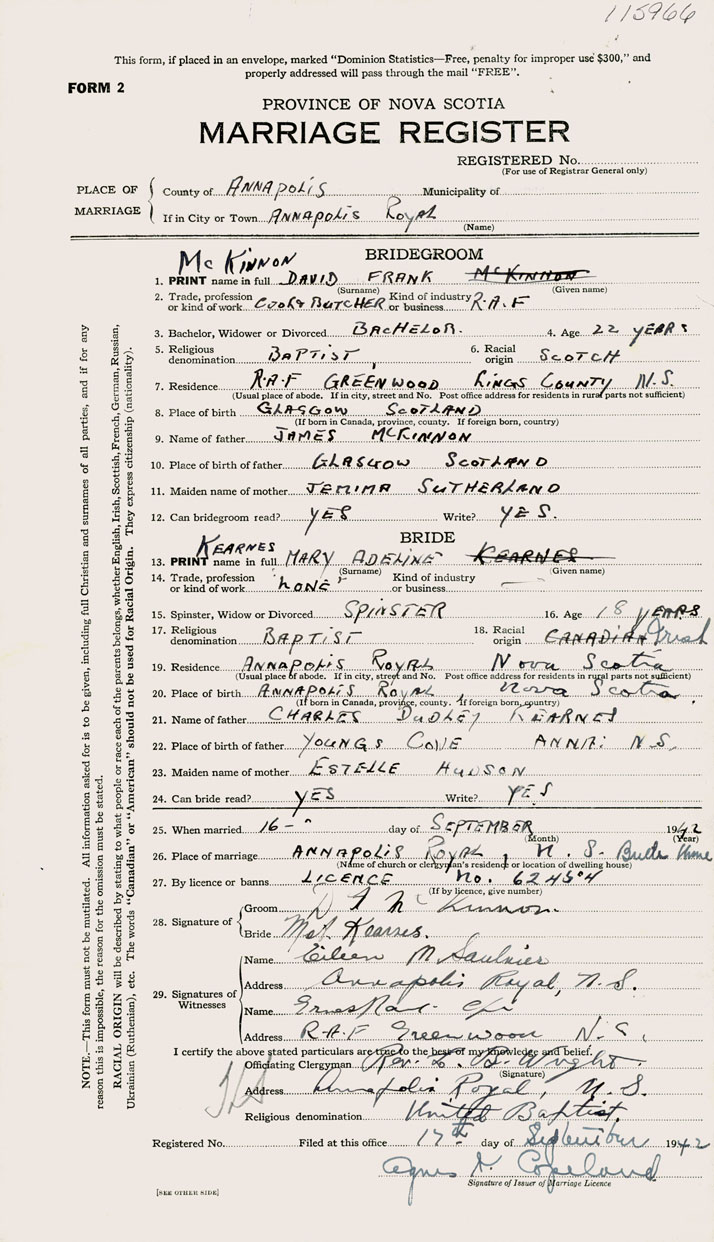 115966
This form, if placed in an envelope, marked “Dominion Statistics—Free, penalty for improper use $300,” and
properly addressed will pass through the mail “FREE”.
FORM 2
PROVINCE OF NOVA SCOTIA
MARRIAGE REGISTER
REGISTERED No.
(For use of Registrar General only)
PLACE OF MARRIAGE
County of ANNAPOLIS Municipality of
If in City or Town ANNAPOLIS ROYAL
(Name)
McKINNON BRIDEGROOM
1. PRINT name in full DAVID FRANK McKINNON
(Surname) (Given name)
2. Trade, profession or kind of work COOK & BUTCHER Kind of industry or business R.A.F
3. Bachelor, Widower or Divorced BACHELOR. 4. Age 22 YEARS
5. Religious denomination BAPTIST 6. Racial origin SCOTCH
7. Residence R.A.F GREENWOOD KINGS COUNTY N.S.
(Usual place of abode. If in city, street and No. Post office address for residents in rural parts not sufficient)
8. Place of birth GLASGOW SCOTLAND
(If born in Canada, province, county. If foreign born, country)
9. Name of father JAMES McKINNON
10. Place of birth of father GLASGOW SCOTLAND
11. Maiden name of mother JEMIMA SUTHERLAND
12. Can bridegroom read? YES Write? YES.
KEARNES BRIDE
13. PRINT name in full MARY ADELINE KEARNES
(Surname) (Given name)
14. Trade, profession or kind of work NONE Kind of industry or business —
15. Spinster, Widow or Divorced SPINSTER 16. Age 18 YEARS
17. Religious denomination BAPTIST 18. Racial origin CANADIAN Irish
19. Residence ANNAPOLIS ROYAL Nova Scotia
(Usual place of abode. If in city, street and No. Post office address for residents in rural parts not sufficient)
20. Place of birth ANNAPOLIS ROYAL, Nova Scotia
(If born in Canada, province, county. If foreign born, country)
21. Name of father CHARLES DUDLEY KEARNES
22. Place of birth of father YOUNGS COVE ANNA: N.S.
23. Maiden name of mother ESTELLE HUDSON
24. Can bride read? YES Write? YES
25. When married 16- day of SEPTEMBER 1942
(Month) (Year)
26. Place of marriage ANNAPOLIS ROYAL, N.S. Home
(Name of church or clergyman's residence or location of dwelling house)
27. By licence or banns LICENCE No. 624504
(If by licence, give number)
28. Signature of
Groom D F McKinnon.
Bride Kearnes.
29. Signatures of Witnesses
Name Eileen M Saulnier
Address Annapolis Royal, N.S.
Name
Address R.A.F Greenwood N.S.
I certify the above stated particulars are true to the best of my knowledge and belief.
Officiating Clergyman Rev. L. B. Wright.
(Signature)
Address Annapolis Royal, N.S.
Religious denomination United Baptist.
Registered No. Filed at this office 17th day of September 1942
Agnes Copeland
Signature of Issuer of Marriage Licence
[SEE OTHER SIDE]
NOTE.—This form must not be mutilated. All information asked for is to be given, including full Christian and surnames of all parties, and if for any
reason this is impossible, the reason for the omission must be stated.
RACIAL ORIGIN will be described by stating to what people or race each of the parents belongs, whether English, Irish, Scottish, French, German, Russian,
Ukrainian (Ruthenian), etc. The words “Canadian” or “American” should not be used for Racial Origin. They express citizenship (nationality).